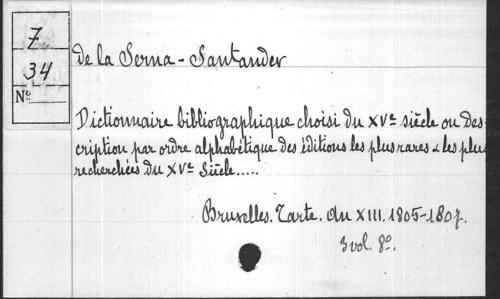 7
34
Nº
de la Serna - Santander
Dictionnaire bibliographique choisi du XVe siècle ou Des-
cription par ordre alphabétique des éditions les plus rares & les plus
recherchées du XVe Siècle.....
Bruxelles. Tarte. An XIII. 1805-1807.
3 vol. 8º.